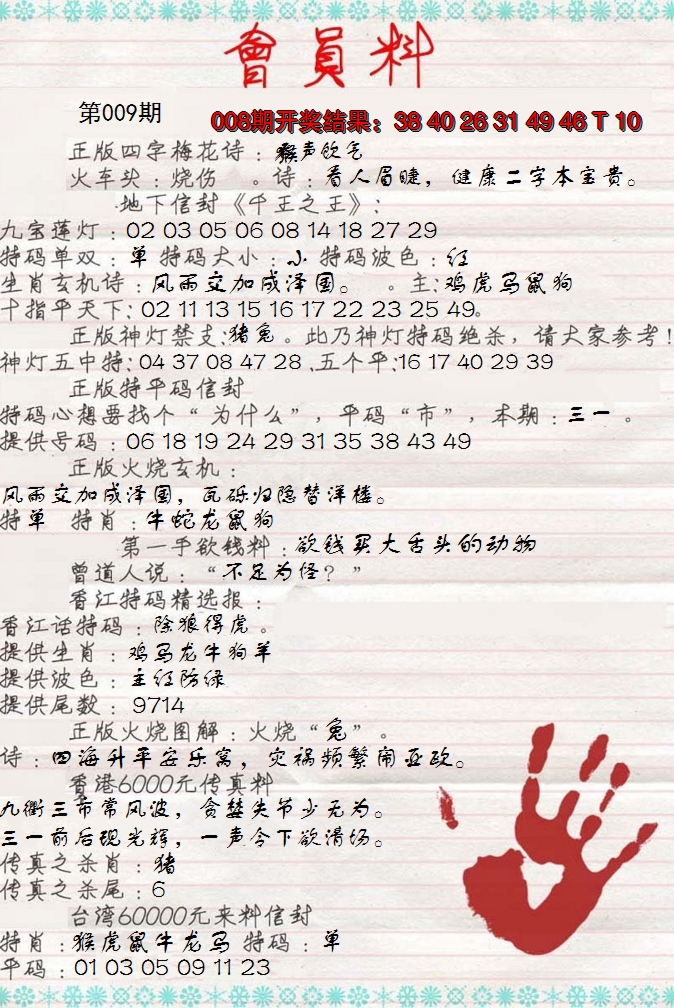 會員料
第009期
008期开奖结果：38 40 26 31 49 46 T 10
正版四字梅花诗：猴声饮气
火车头：烧伤 。诗：看人眉睫，健康二字本宝贵。
地下信封《千王之王》：
九宝莲灯：02 03 05 06 08 14 18 27 29
特码单双：单 特码大小：小 特码波色：红
生肖玄机诗：风雨交加成泽国。 。主：鸡虎马鼠狗
十指平天下：02 11 13 15 16 17 22 23 25 49。
正版神灯禁支：猪兔。此乃神灯特码绝杀，请大家参考！
神灯五中特：04 37 08 47 28 .五个平：16 17 40 29 39
正版特平码信封
特码心想要找个“为什么”，平码“市”，本期：三一 。
提供号码：06 18 19 24 29 31 35 38 43 49
正版火烧玄机：
风雨交加成泽国，瓦砾归隐替洋楼。
特单 特肖：牛蛇龙鼠狗
第一手欲钱料：欲钱买大舌头的动物
曾道人说：“不足为怪？”
香江特码精选报：
香江话特码：除狼得虎。
提供生肖：鸡马龙牛狗羊
提供波色：主红防绿
提供尾数：9714
正版火烧图解：火烧“兔”。
诗：四海升平安乐窝，灾祸频繁闹亚欧。
香港6000元传真料
九衢三市常风波，贪婪失节少无为。
三一前后现光辉，一声令下欲清场。
传真之杀肖：猪
传真之杀尾：6
台湾60000元来料信封
特肖：猴虎鼠牛龙马 特码：单
平码：01 03 05 09 11 23